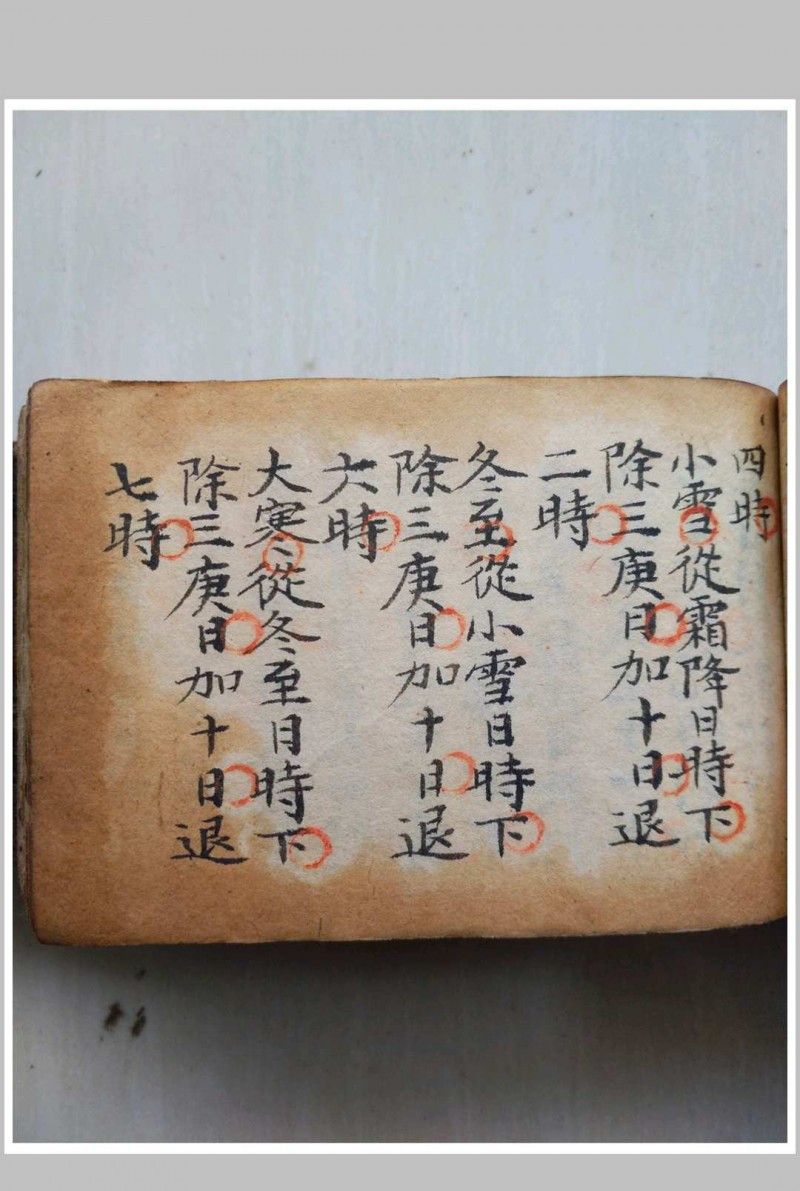 四時
小雪從霜降日時下
除三庚日加十日退
二時
冬至從小雪日時下
除三庚日加十日退
六時
大寒從冬至日時下
除三庚日加十日退
七時